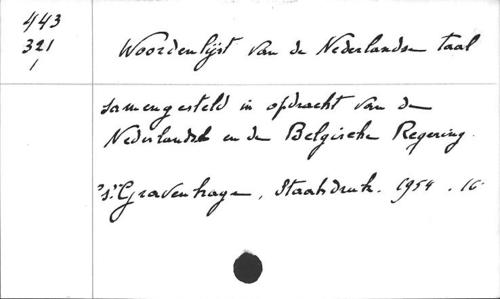 443
321
1
Woordenlijst van de Nederlandse taal
samengesteld in opdracht van de
Nederlandse en de Belgische Regering.
's-Gravenhage, Staatsdruk. 1954. 16°